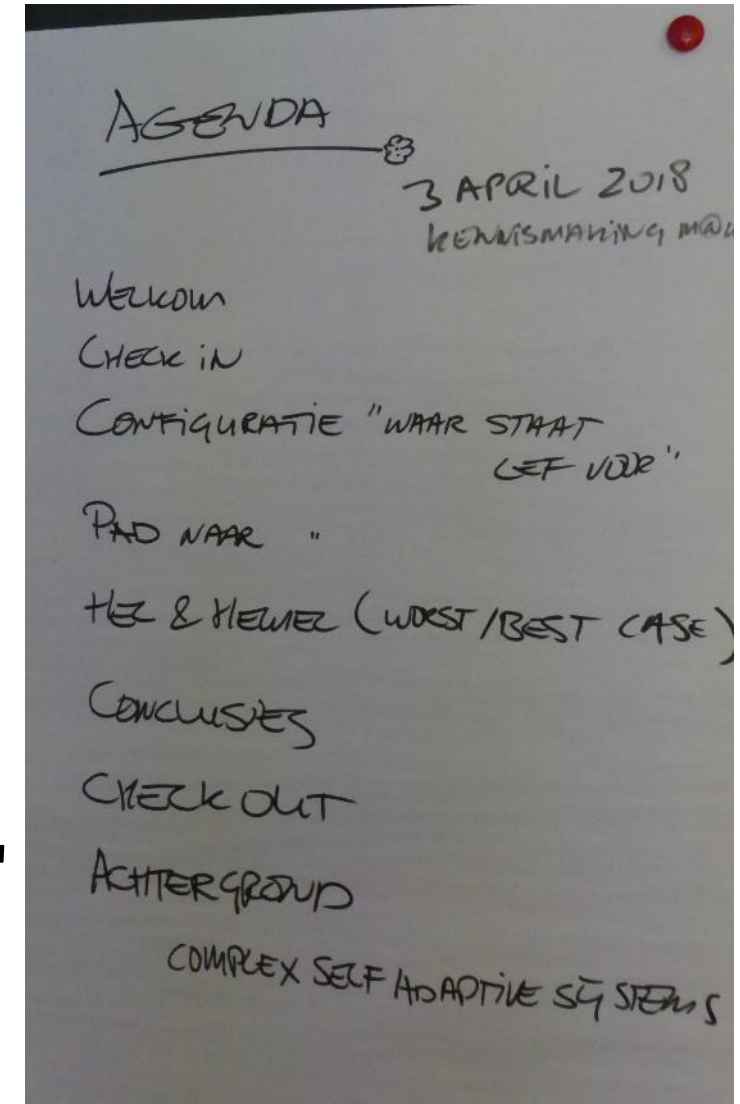 AGENDA
3 APRIL 2018
KENNISMAKING
WELKOM
CHECK IN
CONFIGURATIE "WAAR STAAT
LEF VOOR"
PAD NAAR "
HEL & HEMEL (WORST/BEST CASE)
CONCLUSIES
CHECK OUT
ACHTERGROND
COMPLEX SELF ADAPTIVE SYSTEMS